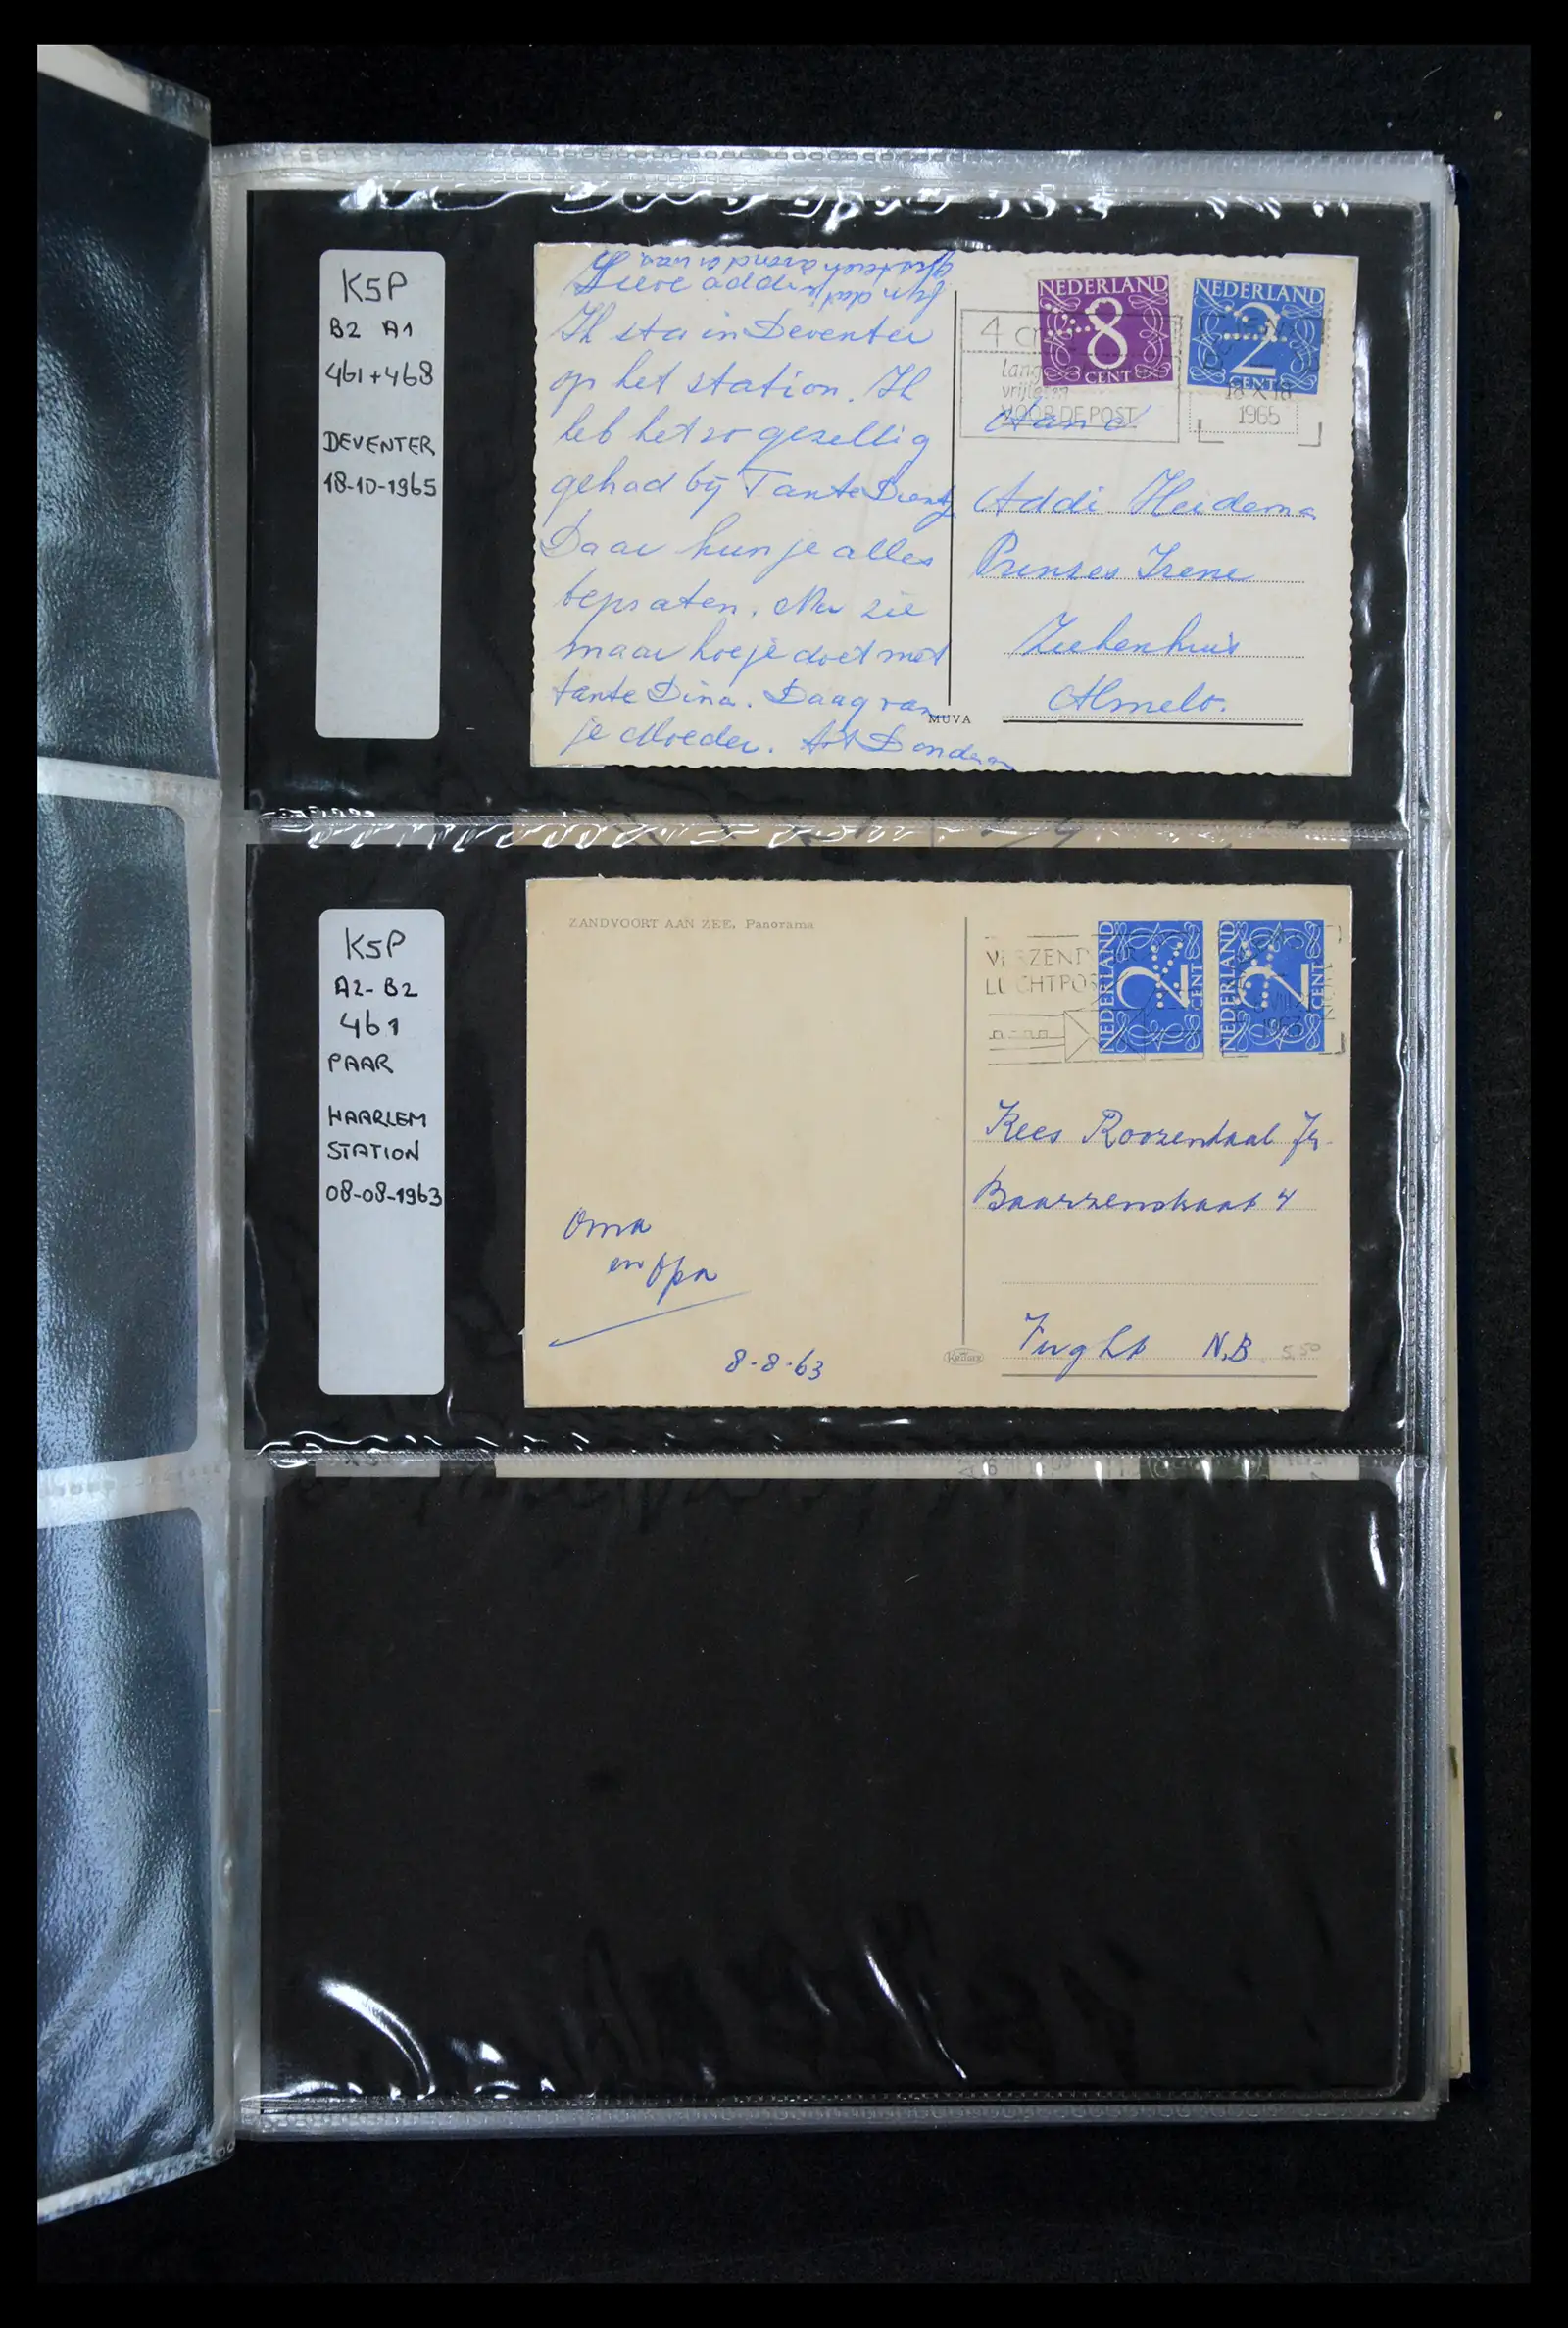 K5P
B2 A1
461+468
DEVENTER
18-10-1965
Lieve addi
Ik sta in Deventer
op het station. Ik
heb het zo gezellig
gehad bij Tante
Daar kun je alles
bepraten. Nu zie
maar hoe je doet met
tante Dina. Daag van
je Moeder.
MUVA
NEDERLAND
8
CENT
NEDERLAND
2
CENT
4 cm
lang
vrijlaten
VOOR DE POST
18 X 18
1965
Aan
Addi Heidema
Prinses Irene
Ziekenhuis
Almelo.
K5P
A2-B2
461
PAAR
HAARLEM
STATION
08-08-1963
ZANDVOORT AAN ZEE, Panorama
Oma
en Opa
8-8-63
Krüger
VERZEND
LUCHTPOS
NEDERLAND
2
CENT
NEDERLAND
2
CENT
VIII
1963
Kees Roozendaal Jr.
4
Vught N.B.
5.50